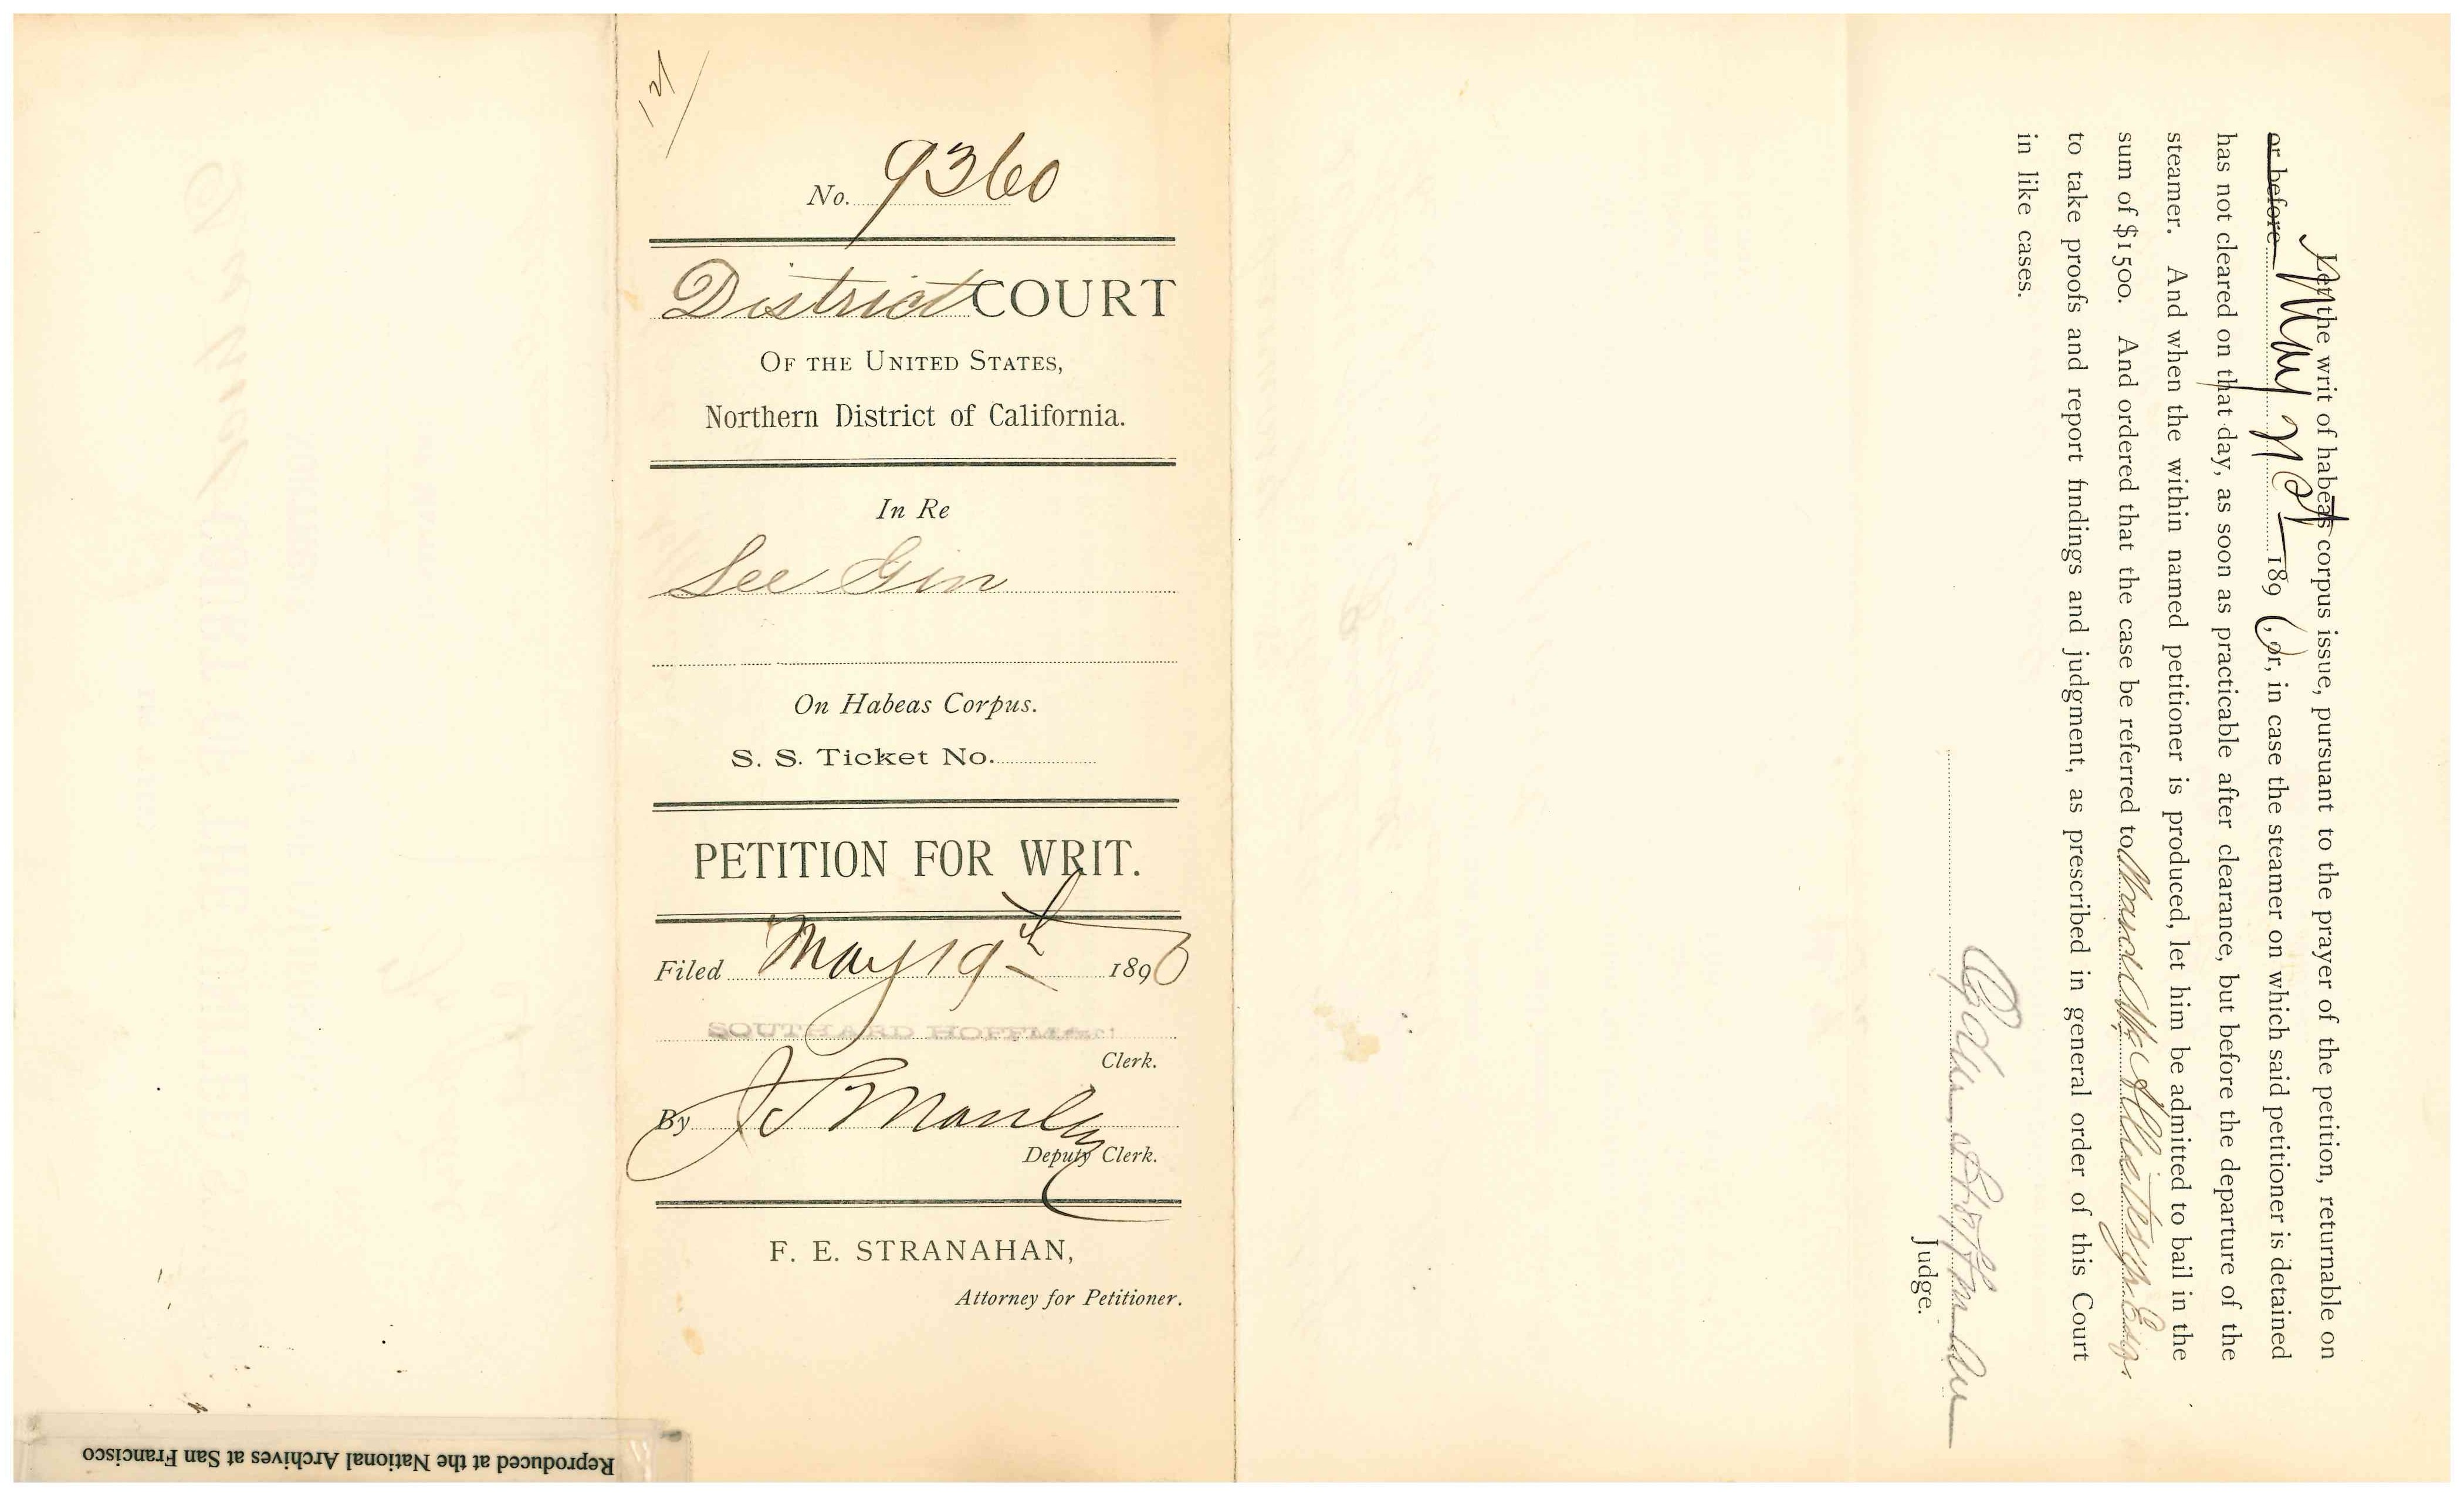 121
No. 9360
District COURT
OF THE UNITED STATES,
Northern District of California.
In Re
See Gin
On Habeas Corpus.
S. S. Ticket No.
PETITION FOR WRIT.
Filed May 19th 1890
SOUTHARD HOFFMAN
Clerk.
By J S Manley
Deputy Clerk.
F. E. STRANAHAN,
Attorney for Petitioner.
Let the writ of habeas corpus issue, pursuant to the prayer of the petition, returnable on
or before May 189 , or, in case the steamer on which said petitioner is detained
has not cleared on that day, as soon as practicable after clearance, but before the departure of the
steamer. And when the within named petitioner is produced, let him be admitted to bail in the
sum of $1500. And ordered that the case be referred to Ward McAllister Jr. Esq.
to take proofs and report findings and judgment, as prescribed in general order of this Court
in like cases.
Ogden Hoffman
Judge.
Reproduced at the National Archives at San Francisco